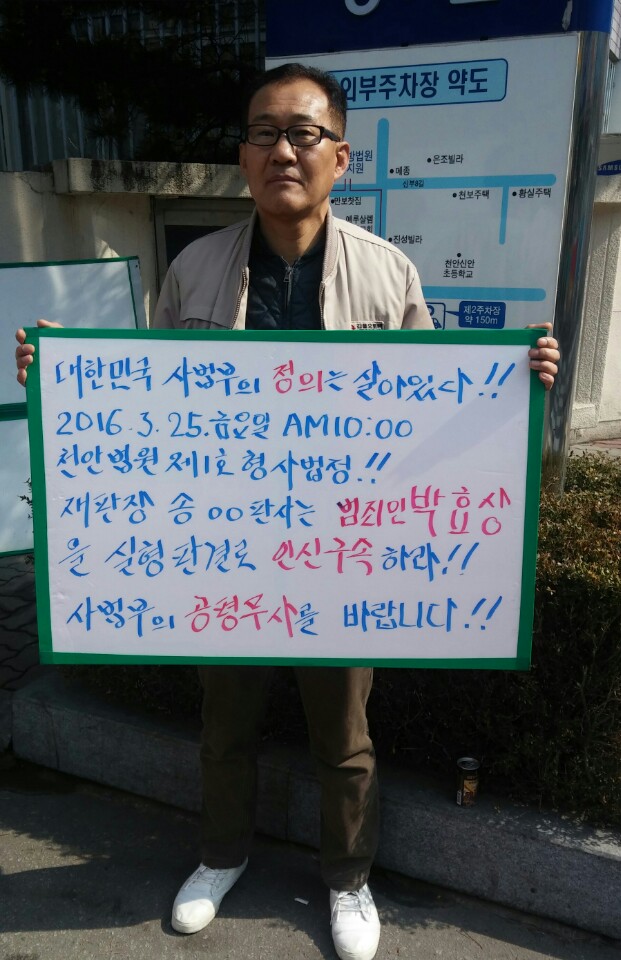 외부주차장 약도
방법원
지원
메종
온조빌라
신부8길
만보찻집
천보주택
황실주택
예루살렘
진성빌라
천안신안
초등학교
제2주차장
약 150m
대한민국 사법부의 정의는 살아있다!!
2016.3.25.금요일 AM10:00
천안법원 제1호 형사법정!!
재판장 송 00판사는 범죄인박효상
을 실형판결로 인신구속하라!!
사법부의 공평무사를 바랍니다!!